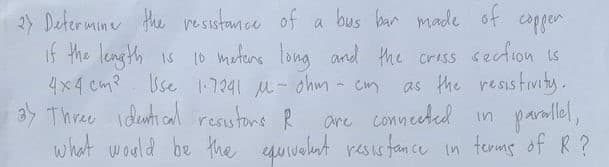 2) Determine the resistance of a bus bar made of copper
if the length is 10 meters long and the cross section is
4x4 cm². Use 1.7241 μ-ohm-cm as the resistivity.
3) Three identical resistors R are connected in parallel,
what would be the equivalent resistance in terms of R?